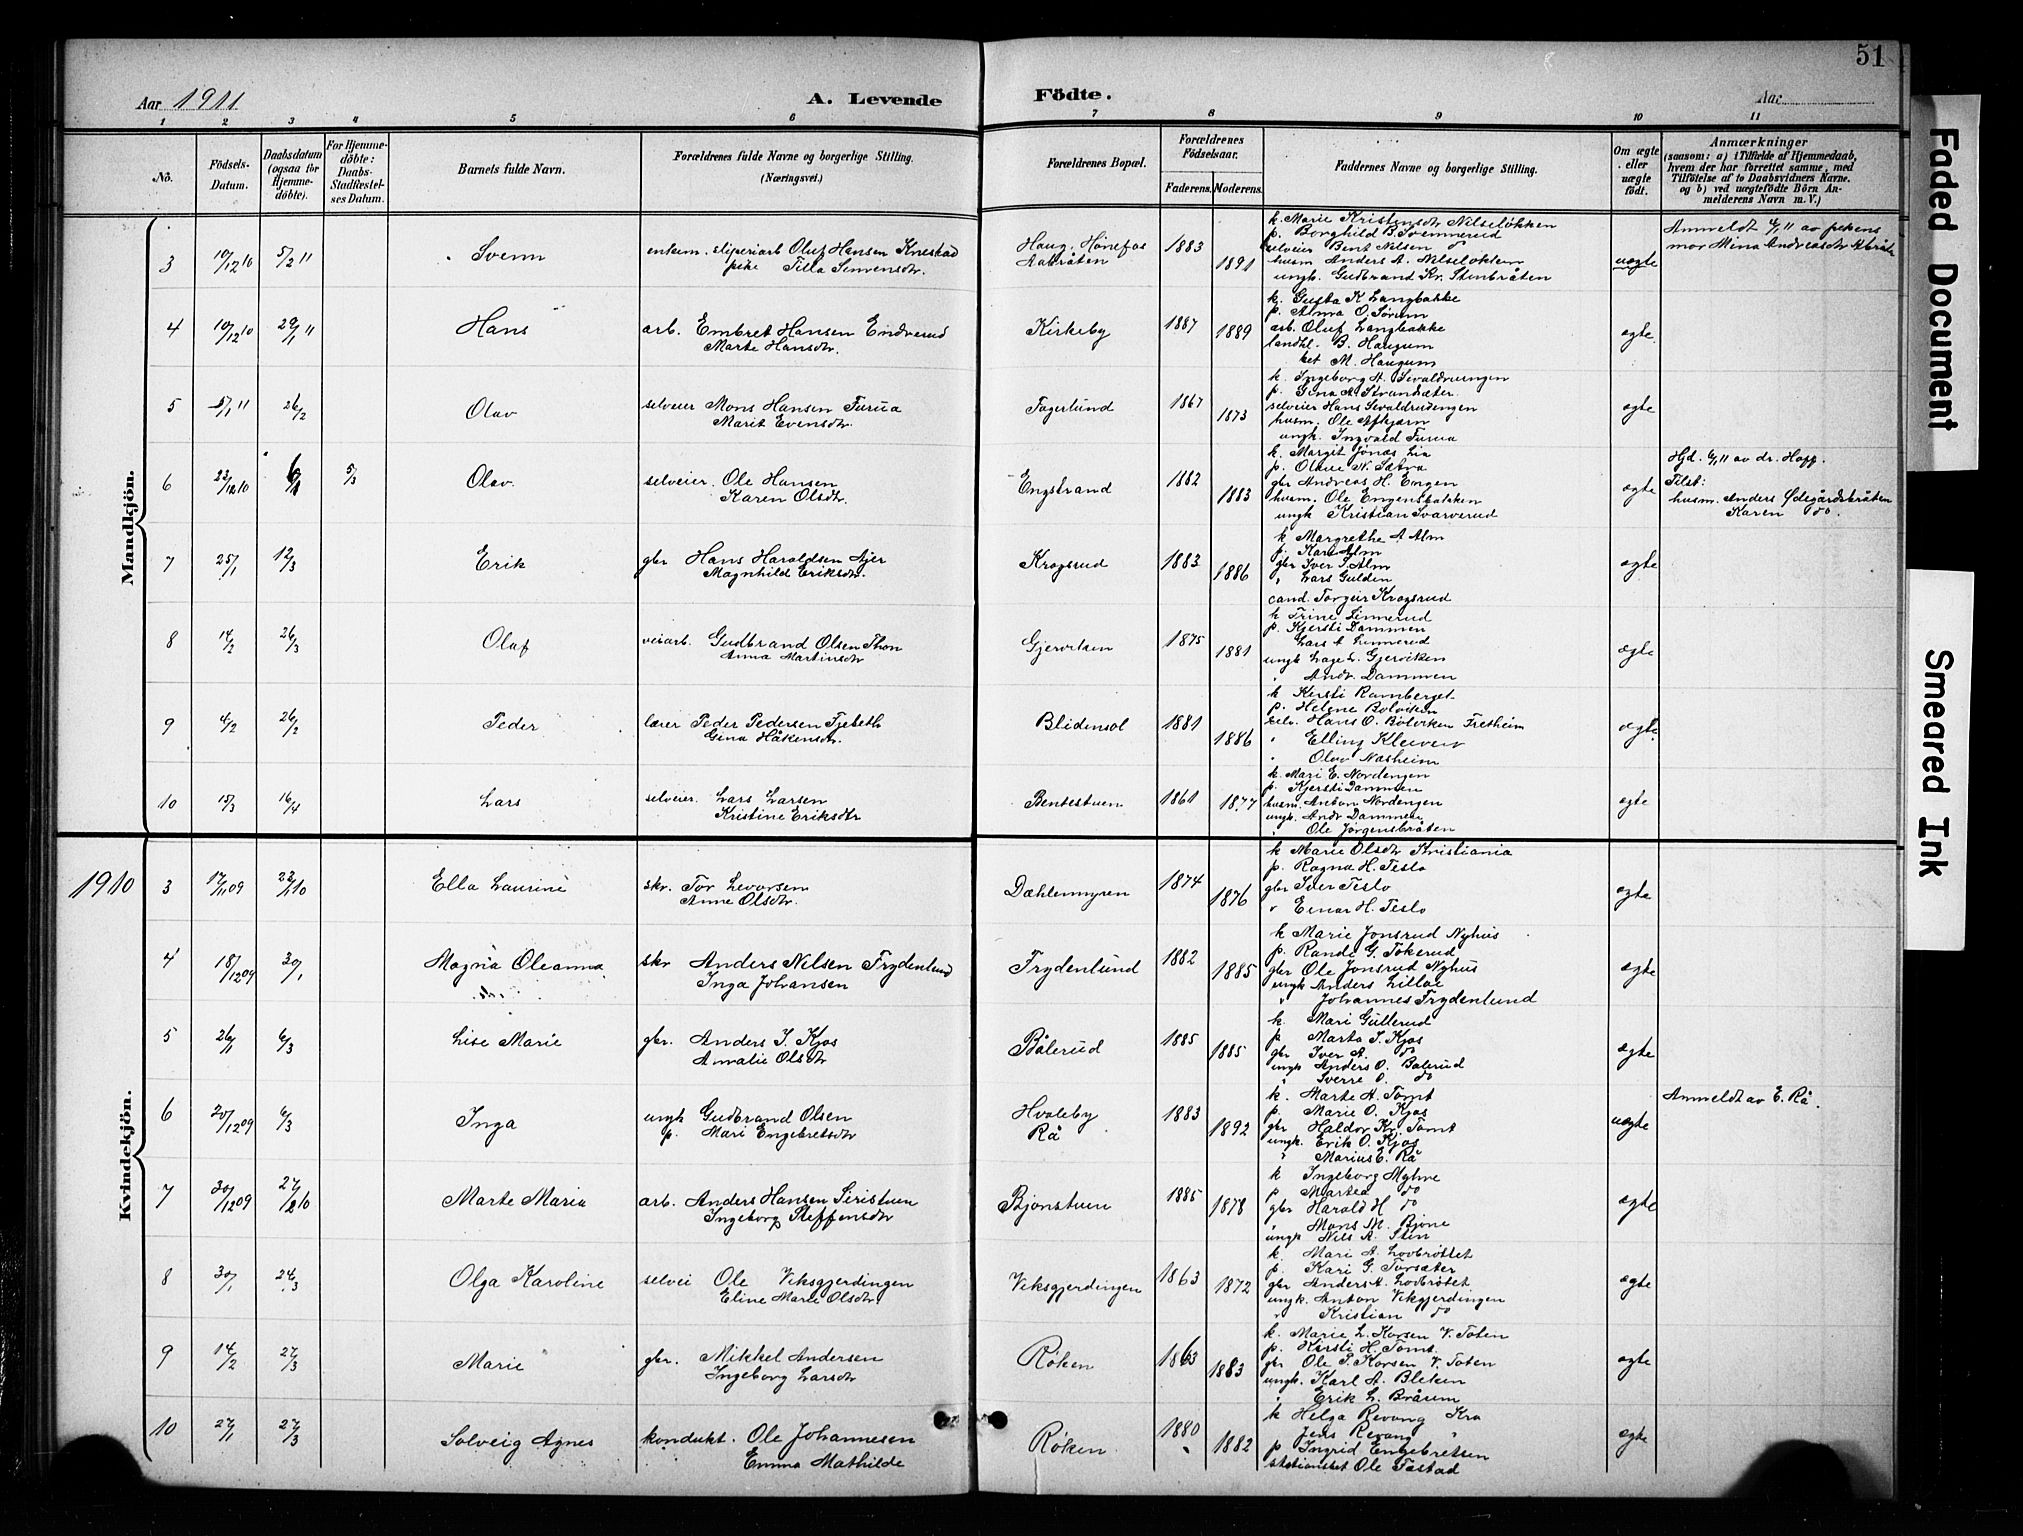 51
Aar 1911
A. Levende Födte.
Aar
1 2 3 4 5 6 7 8 9 10 11
No.
Födsels-Datum.
Daabsdatum (ogsaa for Hjemmedöbte).
For Hjemmedöbte: Daabs-Stadfæstelses Datum.
Barnets fulde Navn.
Forældrenes fulde Navne og borgerlige Stilling.
(Næringsvei.)
Forældrenes Bopæl.
Forældrenes Födselsaar.
Faderens. Moderens.
Faddernes Navne og borgerlige Stilling.
Om ægte eller uægte födt.
Anmærkninger
(saasom: a) i Tilfælde af Hjemmedaab, hvem der har forrettet samme, med Tilföielse af to Daabsvidners Navne. og b) ved uægtefödte Börn Anmelderens Navn m. V.)
Mandkjön.
3 10/12 10 5/2 11 Svenn
enkem. sliperiarb Oluf Hansen Knestad
pike Tilla Simensdtr.
Haug. Hønefos
1883 1891
k. Marie Kristensdtr Nilseløkken
p. Borghild B. Svennerud
selveier Bent Nilsen do
husm Anders A. Nilseløkken
ungk. Gudbrand Kr. Stenbråten
uægte
Anmeldt 4/1 11 av pikens
mor Mina Andreasdtr
4 10/12 10 29/1 11 Hans
arb. Embret Hansen Endrerud
Marte Hansdtr.
Kirkeby
1887 1889
k. Gusta K Langbakke
p. Alma O. Sørum
arb. Oluf Langbakke
landhl. B. Haugum
M. Haugum
ægte.
5 5/1 11 26/2 Olav
selveier Mons Hansen Furua
Marit Evensdtr.
Fagerlund
1867 1873
k. Ingeborg H. Sevaldrudengen
p. Gina A. Strandsæter.
selveier Hans Sevaldrudengen
husm. Ole
ungk. Ingvald Furua
ægte
6 23/12 10 5/3 Olav.
selveier. Ole Hansen
Karen Olsdtr.
Engstrand
1882 1883
k. Margit Jonas Lia
p. Oline N. Sætra
gbr Andreas H. Engen
husm. Ole Engensbakken
ungk Kristian Svarverud
ægte
Hjd. 6/1 11 av dr. Hopp.
Tilst:
husm. Anders Ødegårdsbråten
Karen do.
7 25/1 12/3 Erik
gbr Hans Haraldsen Ajer
Magnhild Eriksdtr.
Krogsrud
1883 1886
k Margrethe A Alm
p. Kari Alm
gbr Iver I. Alm
" Lars Gulden
cand. Torgeir Krogsrud
ægte
8 14/2 26/3 Olaf
veiarb. Gudbrand Olsen Thon
Anna Martinsdtr
Gjerviken
1875 1881
k Trine Linnerud
p. Kjersti Dammen
Lars A Linnerud
ungk Lage L. Gjerviken
" Andr. Dammen
ægte
9 4/2 26/2 Peder
lærer Peder Pedersen Tjebeth
Gina Håkensdtr.
Blidensol
1881 1886
k Kirsti Ramberget
p. Helene Bølviken
selv. Hans O. Bølviken Fretheim
" Elling Kleiven
" Olav Næsheim
ægte.
10 15/3 16/4 Lars
selveier. Lars Larsen
Kristine Eriksdtr
Bentestuen
1861 1877
k. Mari E. Nordengen
p. Kjersti Dammen
husm. Anton Nordengen
ungk. Andr Dammen
" Ole Jørgensbråten
ægte
1910
Kvindekjön.
3 17/11 09 23/1 10 Ella Laurine
skr. Tor Levorsen
Anne Olsdtr.
Dæhlenmyren
1874 1876
k Marie Olsdtr Kristiania
p. Ragna H. Teslo
gbr Iver Teslo
" Einar H. Teslo
ægte
4 18/12 09 30/1 Magna Oleanna
skr Anders Nilsen Frydenlund
Inga Johansen
Frydenlund
1882 1885
k Marie Jonsrud Nyhus
p. Randi G. Tokerud
gbr Ole Jonsrud Nyhus
ungk Anders Lilloe
" Johannes Frydenlund
ægte
5 26/1 6/3 Lise Marie
gbr. Anders I. Kjos
Amalie Olsdtr
Bålerud
1885 1885
k. Mari Gullerud
p. Marta I. Kjos
gbr Iver A. do
ungk Anders O. Bålerud
" Sverre O. do
ægte
6 20/12 09 6/3 Inga
ungk Gudbrand Olsen
p. Mari Engebretsdtr
Hvaleby
Rå
1883 1892
k. Marte H. Tømt
p. Marie O. Kjos
gbr Haldor Kr. Tømt
ungk. Erik O. Kjos
" Marius E. Rå
uægte
Anmeldt av E. Rå.
7 30/12 09 Marte Maria
arb. Anders Hansen Siristuen
Ingeborg Steffensdtr
Bjønstuen
1885 1878
k Ingeborg Myhre
p Martea do
gbr Harald H do
" Mons M. Bjøne
ungk Nils A. Stin
ægte
8 30/1 24/3 Olga Karoline
selvei Ole Viksgjerdingen
Eline Marie Olsdtr.
Viksgjerdingen
1863 1872
k. Mari A. Lovbrøttet
p. Kari G. Torsæter
gbr Anders A. Lovbrøtet
ungk. Anton Vikgjerdingen
" Kristian do
ægte
9 14/2 27/3 Marie
gbr. Mikkel Andersen
Ingeborg Larsdtr
Røken
1863 1883
k. Marie L. Korsen V. Toten
p. Kirsti H. Tømt
gbr Ole P. Korsen V. Toten
ungk. Karl A. Bleken
" Erik L. Bråum
ægte
10 27/1 27/3 Solveig Agnes
kondukt. Ole Johannesen
Emma Mathilde
Røken.
1880 1882
k Helga Revang Kra
Jens Revang "
p. Ingrid Engebretsen
Ole Fostad
ægte
Faded Document
Smeared Ink